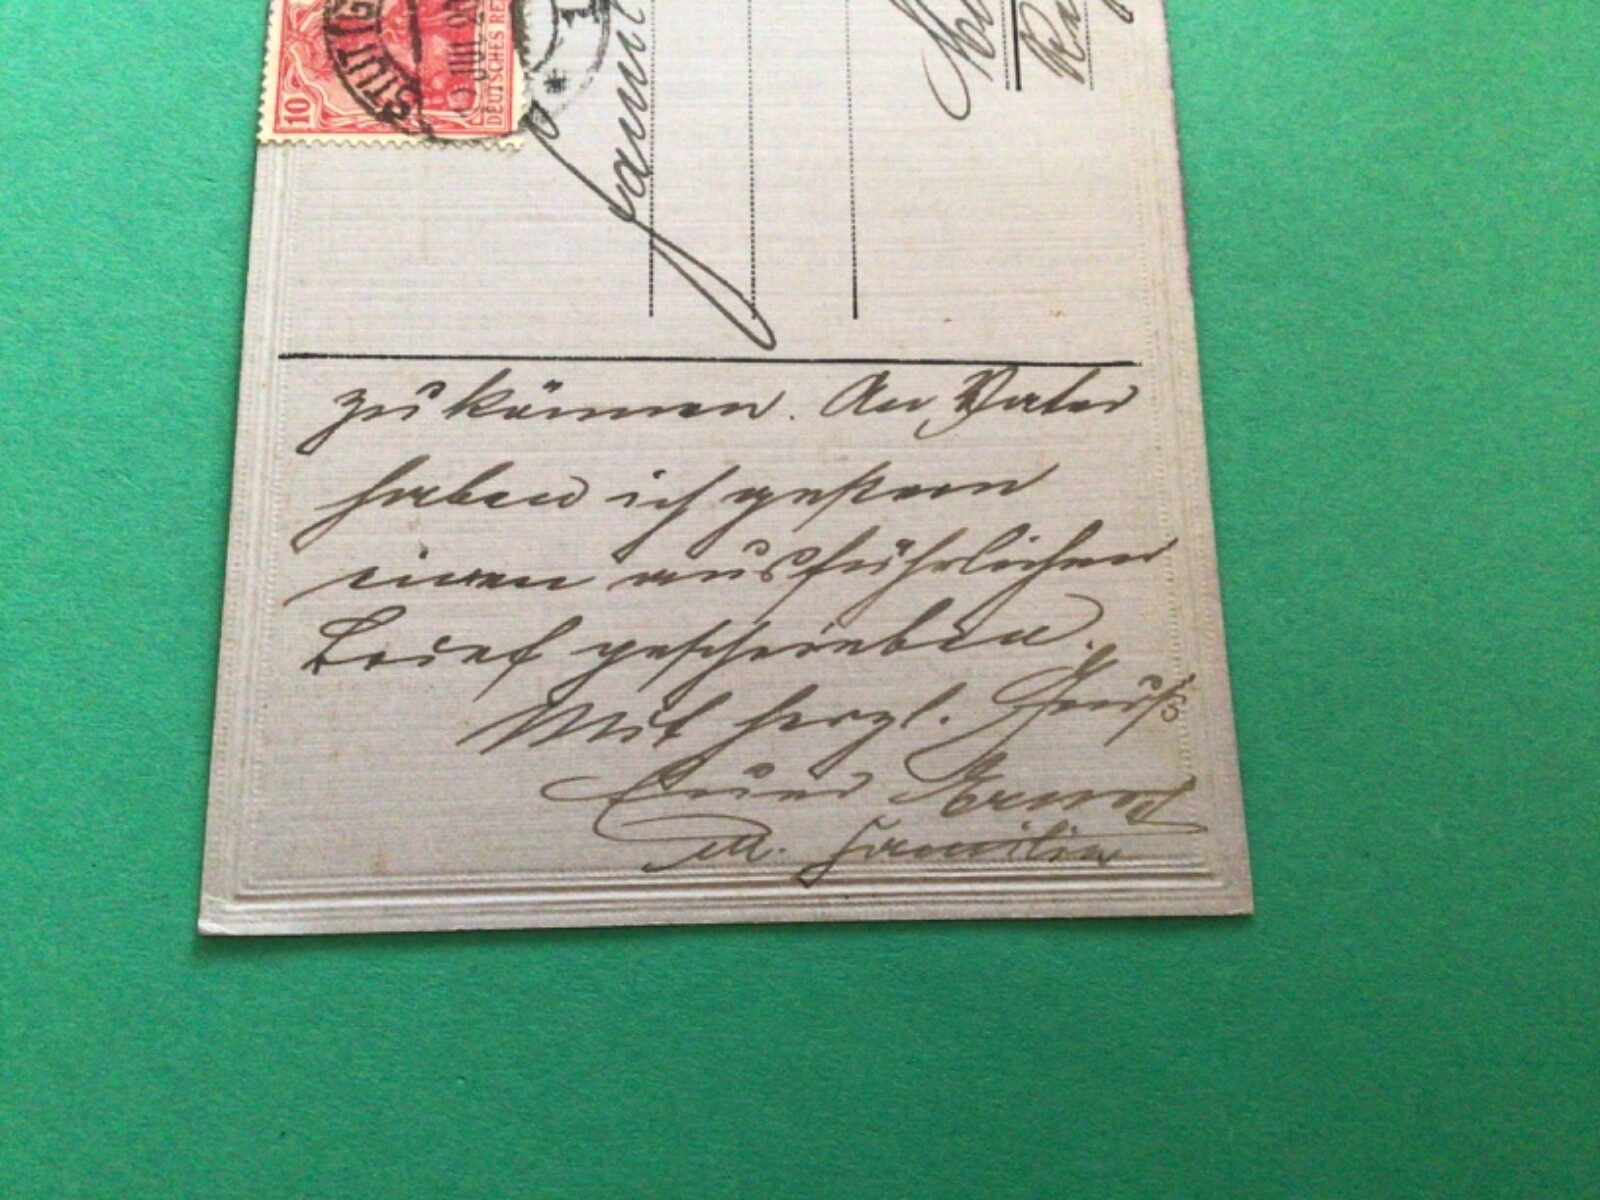 10
DEUTSCHES RE
STUTTG
Famil
zu können. An Vater
haben ich gestern
einen ausführlichen
Brief geschrieben.
Mit herzl. Gruß
Euer
u. Familie